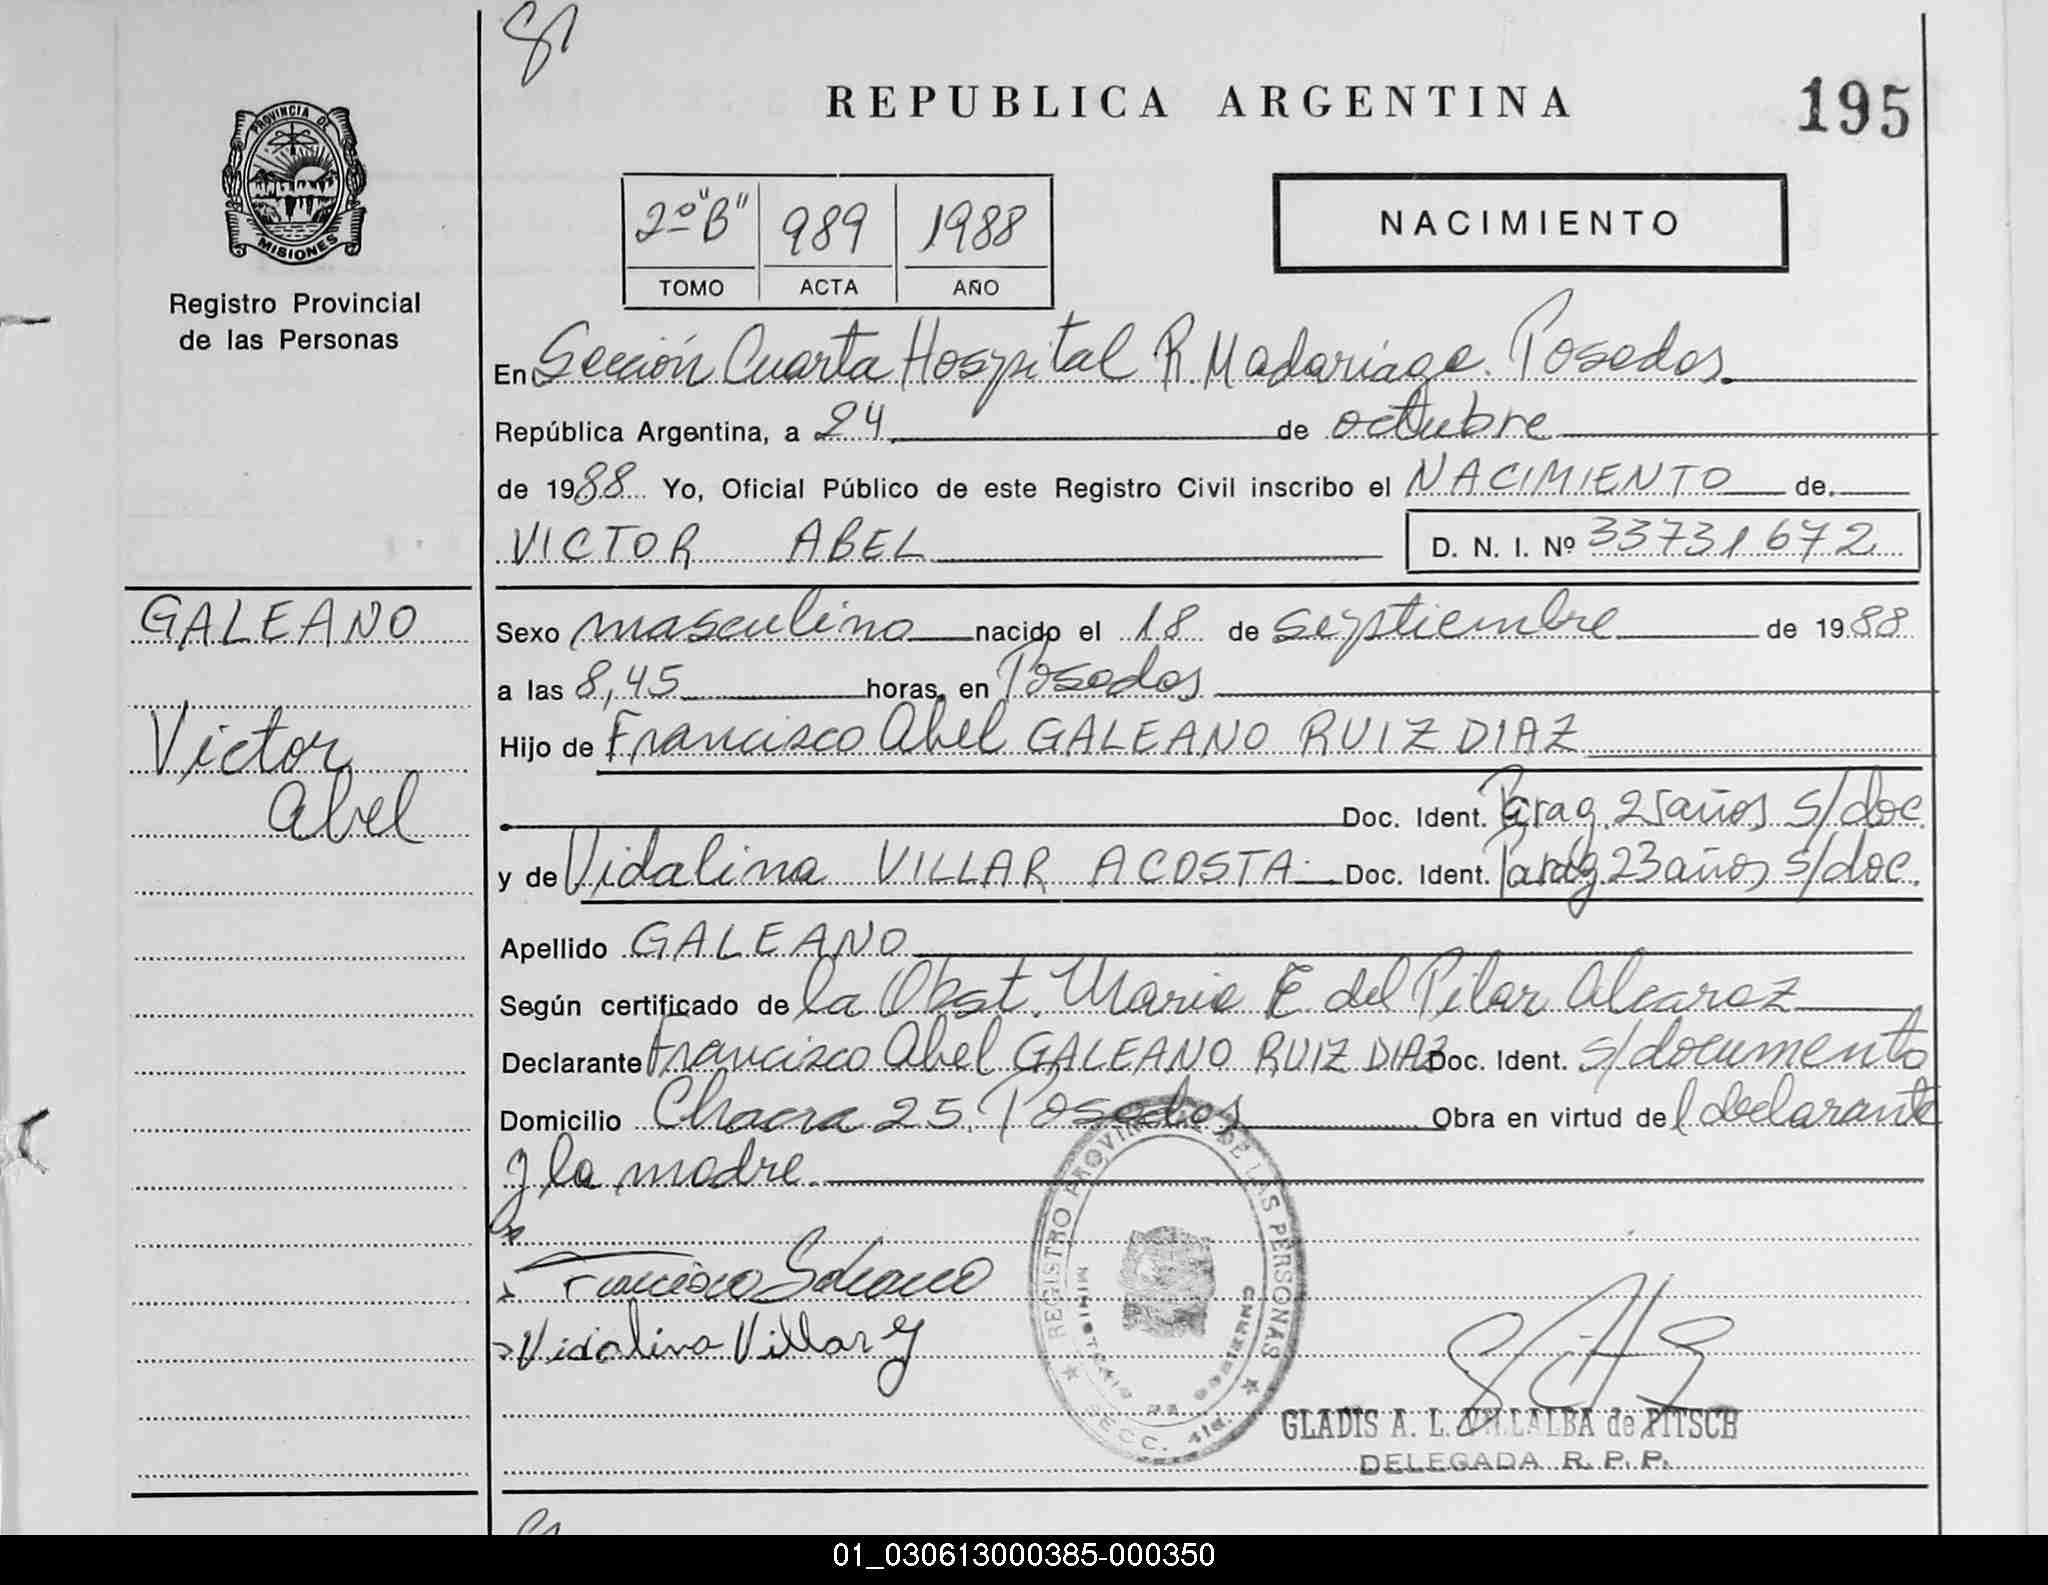 REPUBLICA ARGENTINA
195
PROVINCIA DE
MISIONES
Registro Provincial
de las Personas
2º "B" 989 1988
TOMO ACTA AÑO
NACIMIENTO
En Sección Cuarta Hospital R Madariaga. Posadas
República Argentina, a 24 de octubre
de 1988 Yo, Oficial Público de este Registro Civil inscribo el NACIMIENTO de
VICTOR ABEL D. N. I. Nº 33731672
GALEANO
Victor
Abel
Sexo masculino nacido el 18 de septiembre de 1988
a las 8,45 horas, en Posadas
Hijo de Francisco Abel GALEANO RUIZ DIAZ
Doc. Ident. Parag. 25 años s/doc.
y de Vidalina VILLAR ACOSTA Doc. Ident. Parag. 23 años s/doc.
Apellido GALEANO
Según certificado de la Obst. Maria E del Pilar Alcaraz
Declarante Francisco Abel GALEANO RUIZ DIAZ Doc. Ident. s/documento
Domicilio Chacra 25, Posadas Obra en virtud del declarante
y la madre.
Francisco Galeano
Vidalina Villar
REGISTRO PROVINCIAL DE LAS PERSONAS
MINISTERIO DE GOBIERNO
SECC. 4ta.
GLADIS A. L. VILLALBA de PITSCH
DELEGADA R. P. P.
01_030613000385-000350